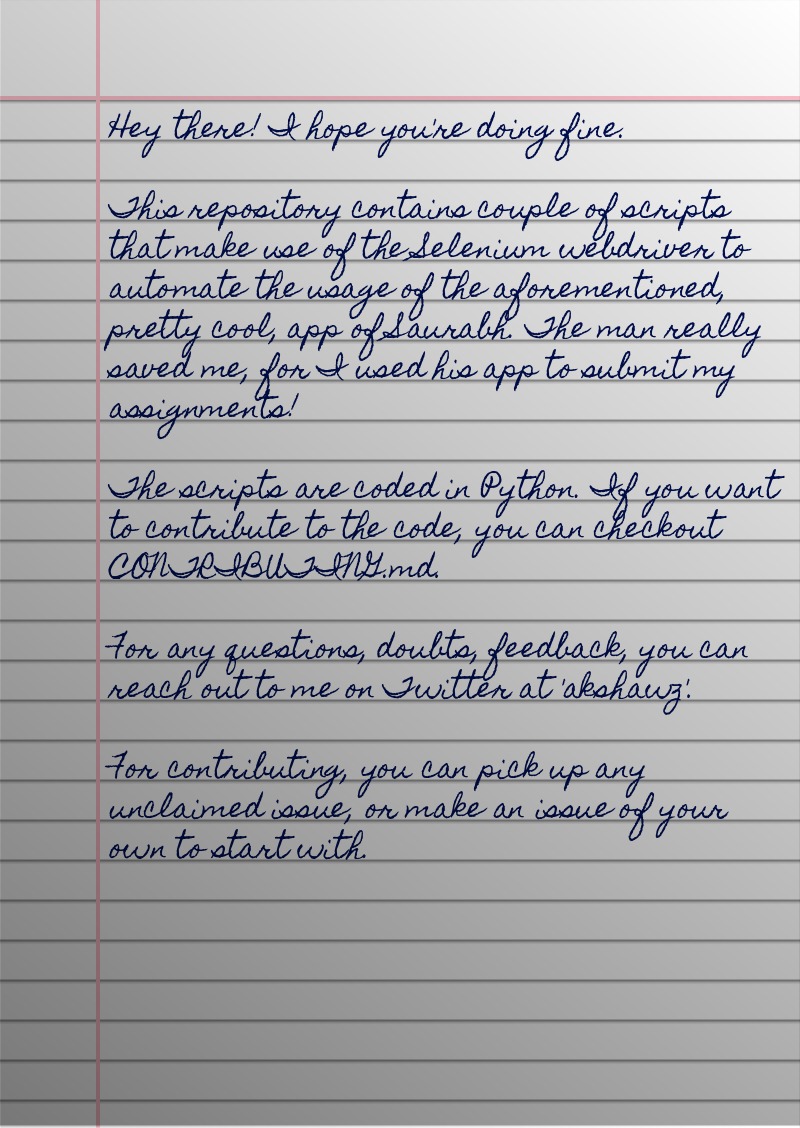 Hey there! I hope you're doing fine.
This repository contains couple of scripts
that make use of the Selenium webdriver to
automate the usage of the aforementioned,
pretty cool, app of Saurabh. The man really
saved me, for I used his app to submit my
assignments!
The scripts are coded in Python. If you want
to contribute to the code, you can checkout
CONTRIBUTING.md.
For any questions, doubts, feedback, you can
reach out to me on Twitter at 'akshawz'.
For contributing, you can pick up any
unclaimed issue, or make an issue of your
own to start with.